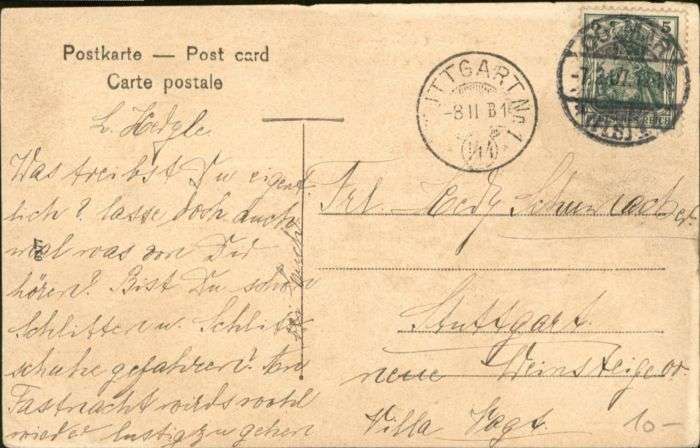 Postkarte — Post card
Carte postale
L. Hedgle
Was treibst Du eigent
lich? lasse doch auch
mal was von Dir
hören? Bist Du schon
Schlitten u. Schlitt
schuhe gefahren? An
Fastnacht wirds wohl
wieder lustig zu gehen
STUTTGART No. 1
-8 II B1
5
Frl. Hedy Schumacher
Stuttgart
neue Weinsteige
Villa Vogt
10-